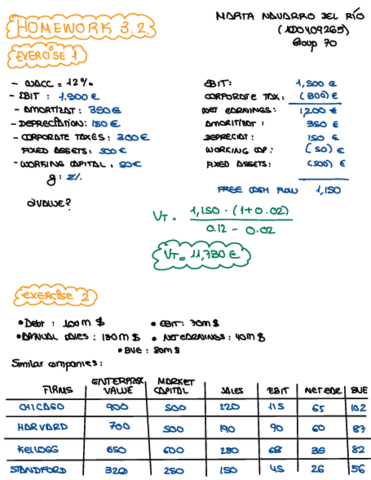 HOMEWORK 3.2.
MARTA NAVARRO DEL RÍO
(100409265)
Group 70
EXERCISE 1
- WACC = 12%
- EBIT: 1,500 €
- AMORTIZAT: 350 €
- DEPRECIATION: 150 €
- CORPORATE TAXES: 300 €
FIXED ASSETS: 500 €
- WORKING CAPITAL: 50 €
g: 2%
¿VALUE?
EBIT: 1,500 €
CORPORATE TAX: (300) €
NET EARNINGS: 1,200 €
AMORTIZAT: 350 €
DEPRECIAT: 150 €
WORKING CAP: (50) €
FIXED ASSETS: (500) €
FREE CASH FLOW 1,150
VT = 1,150 · (1+0.02)
0.12 - 0.02
VT = 11,730 €
EXERCISE 2
• Debt: 100M $ • EBIT: 70M $
• ANNUAL SALES: 180M $ • NET EARNINGS: 40M $
• BVE: 80M $
Similar companies:
FIRMS ENTERPRISE VALUE MARKET CAPITAL SALES EBIT NET EAR. BVE
CHICAGO 900 500 220 115 65 102
HARVARD 700 500 190 90 60 87
KELLOGG 650 600 280 68 38 82
STANDFORD 320 250 150 45 26 56